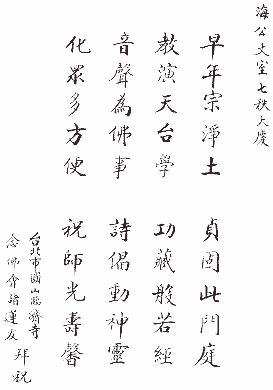 海公丈室七秩大慶
早年宗淨土　貞固此門庭
教演天台學　功藏般若經
音聲為佛事　詩偈動神靈
化眾多方便　祝師光壽馨
台北市圓山臨濟寺
念佛會諸蓮友 拜祝